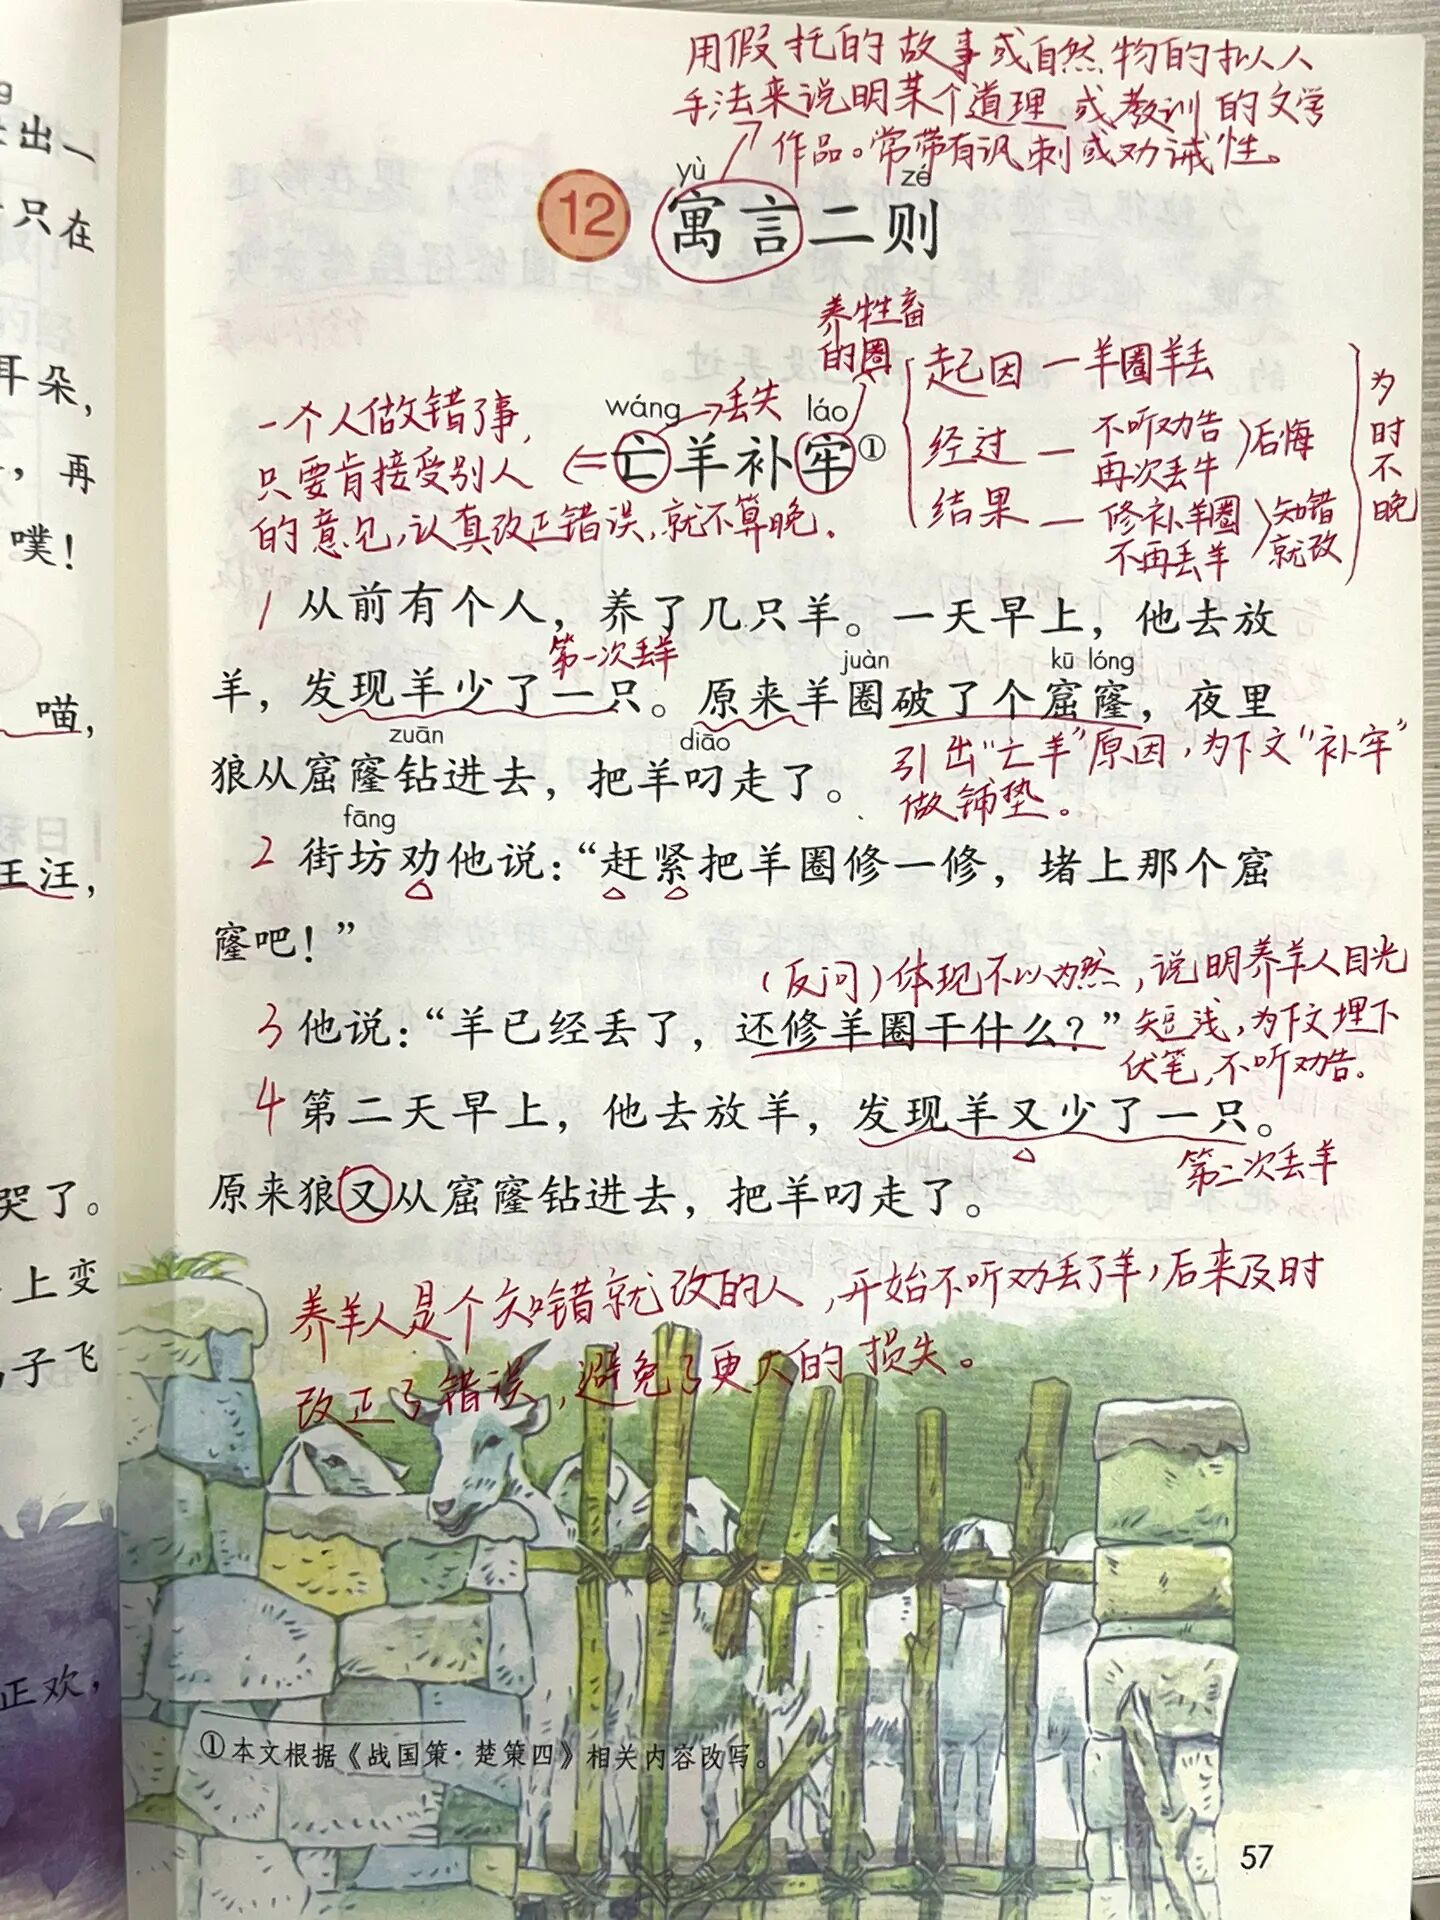 用假托的故事或自然物的拟人
手法来说明某个道理或教训的文学
作品。常带有讽刺或劝诫性。
yù zé
12 寓言二则
养牲畜
的圈
起因 一 羊圈羊丢
经过 一 不听劝告
再次丢牛
后悔
结果 一 修补羊圈
不再丢羊
知错
就改
为
时
不
晚
一个人做错了事,
只要肯接受别人
的意见,认真改正错误,就不算晚.
wáng 丢失 láo
亡羊补牢①
1 从前有个人，养了几只羊。一天早上，他去放
第一次丢羊 juàn kū lóng
羊，发现羊少了一只。原来羊圈破了个窟窿，夜里
zuān diāo
狼从窟窿钻进去，把羊叼走了。
引出“亡羊”原因,为下文“补牢”
做铺垫。
fāng
2 街坊劝他说：“赶紧把羊圈修一修，堵上那个窟
窿吧！”
(反问)体现不以为然,说明养羊人目光
3 他说：“羊已经丢了，还修羊圈干什么？”
短浅,为下文埋下
伏笔,不听劝告.
4 第二天早上，他去放羊，发现羊又少了一只。
第二次丢羊
原来狼又从窟窿钻进去，把羊叼走了。
养羊人是个知错就改的人,开始不听劝丢了羊,后来及时
改正了错误,避免了更大的损失。
①本文根据《战国策·楚策四》相关内容改写。
57
出一
只在
耳朵，
，再
噗！
喵，
汪，
哭了。
上变
子飞
正欢，